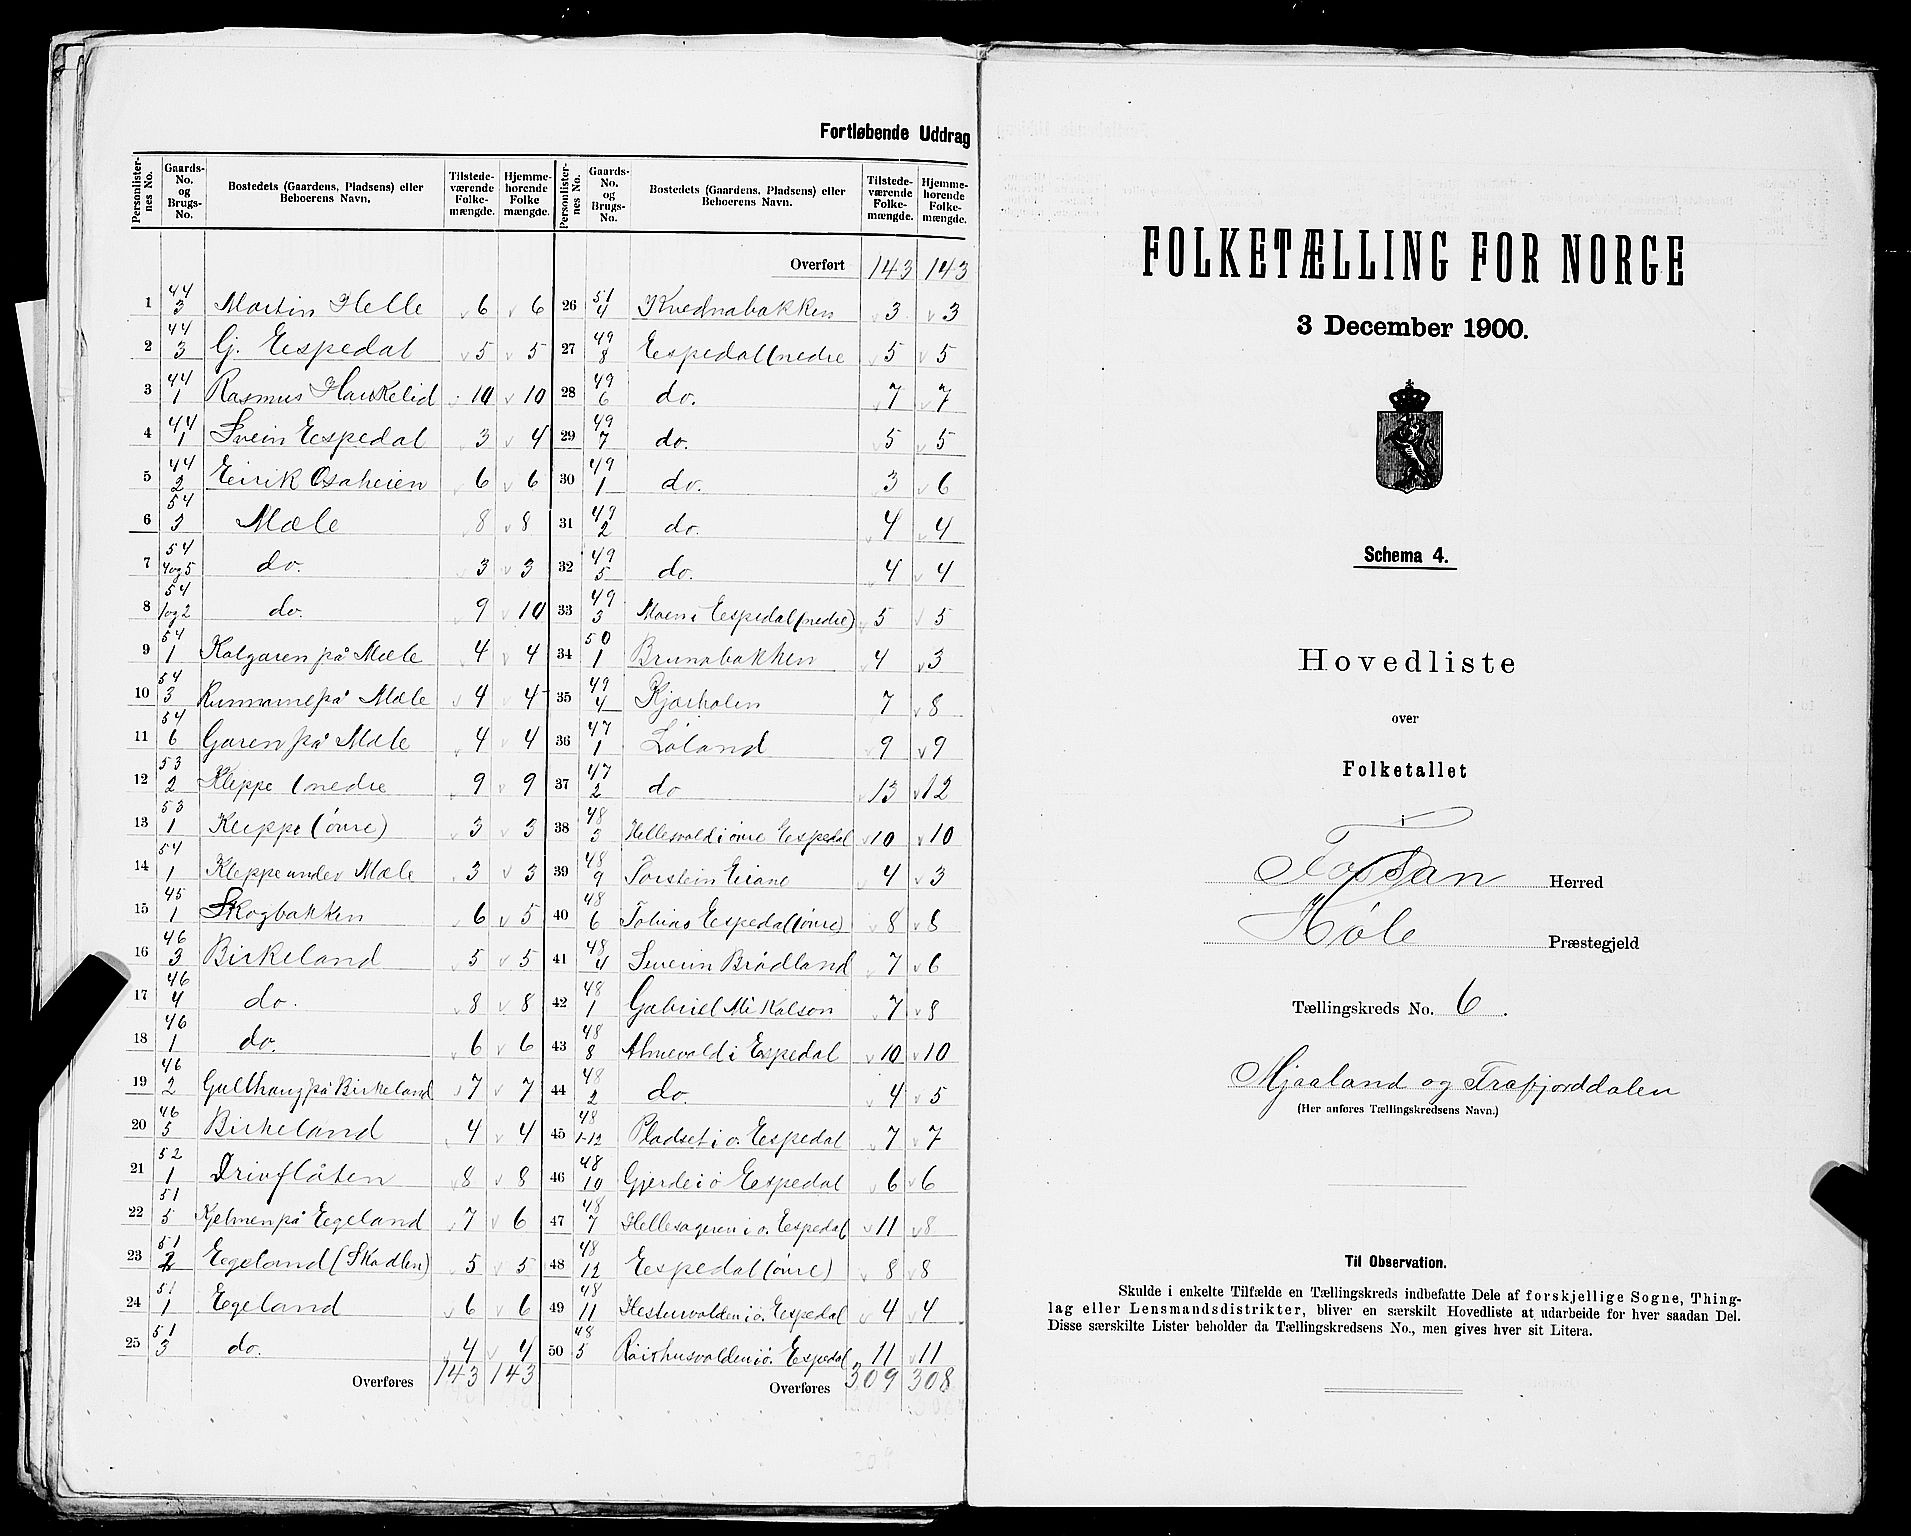 Fortløbende Uddrag
Personlisternes No. | Gaards-No. og Brugs-No. | Bostedets (Gaardens, Pladsens) eller Beboerens Navn. | Tilstedeværende Folkemængde. | Hjemmehørende Folkemængde. | Personlisternes No. | Gaards-No. og Brugs-No. | Bostedets (Gaardens, Pladsens) eller Beboerens Navn. | Tilstedeværende Folkemængde. | Hjemmehørende Folkemængde.
Overført 143 143
1 44/3 Martin Helle 6 6 26 51/4 Kvednabakken 3 3
2 44/3 Gj. Eespedal 5 5 27 49/8 Eespedal (nedre 5 5
3 44/1 Rasmus Haukelid 10 10 28 49/6 do. 7 7
4 44/1 Svein Eespedal 3 4 29 49/7 do. 5 5
5 44/2 Eirik Osaheien 6 6 30 49/1 do. 3 6
6 54/3 Mæle 8 8 31 49/2 do. 4 4
7 54/4og5 do. 3 3 32 49/5 do. 4 4
8 54/1og2 do. 9 10 33 49/3 Moen i Eespedal (nedre) 5 5
9 54/1 Kalgaren på Mæle 4 4 34 50/1 Brunabakken 4 3
10 54/3 på Mæle 4 4 35 49/4 Kjærholen 7 8
11 54/6 Garen på Mæle 4 4 36 47/1 Løland 9 9
12 53/2 Kleppe (nedre 9 9 37 47/2 do 13 12
13 53/1 Kleppe (øvre) 3 3 38 48/3 Hellesvold i øvre Eespedal 10 10
14 54/1 Kleppe under Mæle 3 3 39 48/9 Torstein Eiane 4 3
15 45/1 Skogbakken 6 5 40 48/6 Tobias Eespedal (øvre) 8 8
16 46/3 Birkeland 5 5 41 48/4 Severin Brådland 7 6
17 46/4 do. 8 8 42 48/1 Gabriel Mikalson 7 8
18 46/1 do. 6 6 43 48/8 Almevold i Eespedal 10 10
19 46/2 Gullhaug på Birkeland 7 7 44 48/2 do. 4 5
20 46/5 Birkeland 4 4 45 48/1-12 Pladset i ø. Eespedal 7 7
21 52/1 Drivflåten 8 8 46 48/10 Gjerde i ø Eespedal 6 6
22 51/5 på Eegeland 7 6 47 48/7 Hellesageren i ø. Eespedal 11 8
23 51/2 Eegeland (Skadlen) 5 5 48 48/12 Eespedal (øvre) 8 8
24 51/1 Eegeland 6 6 49 48/11 Hestervolden i ø. Eespedal 4 4
25 51/3 do. 4 4 50 48/5 Røirhusvolden i ø. Eespedal 11 11
Overføres 143 143 Overføres 309 308
FOLKETÆLLING FOR NORGE
3 December 1900.
Schema 4.
Hovedliste
over
Folketallet
i
Fossan Herred
Høle Præstegjeld
Tællingskreds No. 6.
Mjaaland og Frafjorddalen
(Her anføres Tællingskredsens Navn.)
Til Observation.
Skulde i enkelte Tilfælde en Tællingskreds indbefatte Dele af forskjellige Sogne, Thing-
lag eller Lensmandsdistrikter, bliver en særskilt Hovedliste at udarbeide for hver saadan Del.
Disse særskilte Lister beholder da Tællingskredsens No., men gives hver sit Litera.